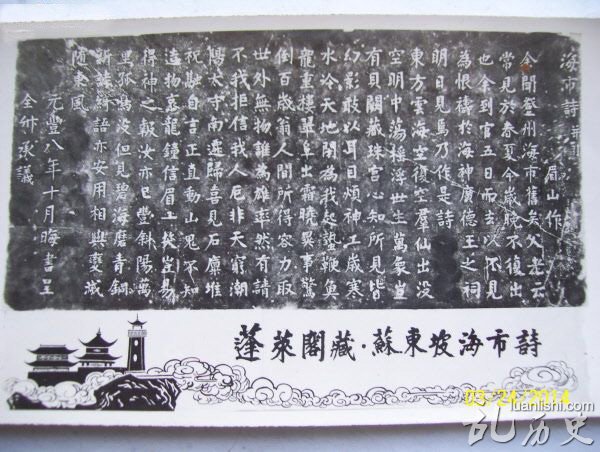 海市詩并引 眉山作
余聞登州海市舊矣父老云
常見於春夏今歲晚不復出
也余到官五日而去以不見
為恨禱於海神廣德王之祠
明日見焉乃作是詩
東方雲海空復空羣仙出没
空明中蕩搖浮世生萬象豈
有貝闕藏珠宮心知所見皆
幻影敢以耳目煩神工歲寒
水冷天地閉為我起蟄鞭魚
龍重樓翠阜出霜曉異事驚
倒百歲翁人間所得容力取
世外無物誰為雄率然有請
不我拒信我人厄非天窮潮
陽太守南遷歸喜見石廩堆
祝融自言正直動山鬼不知
造物哀龍鐘信眉一笑豈易
得神之報汝亦已豐斜陽萬
里孤鳥没但見碧海磨青銅
新詩綺語亦安用相與變滅
隨東風
元豐八年十月晦書呈
全叔承議
蓬萊閣藏·蘇東坡海市詩
03/24/2014
luanlishi.com
乱历史